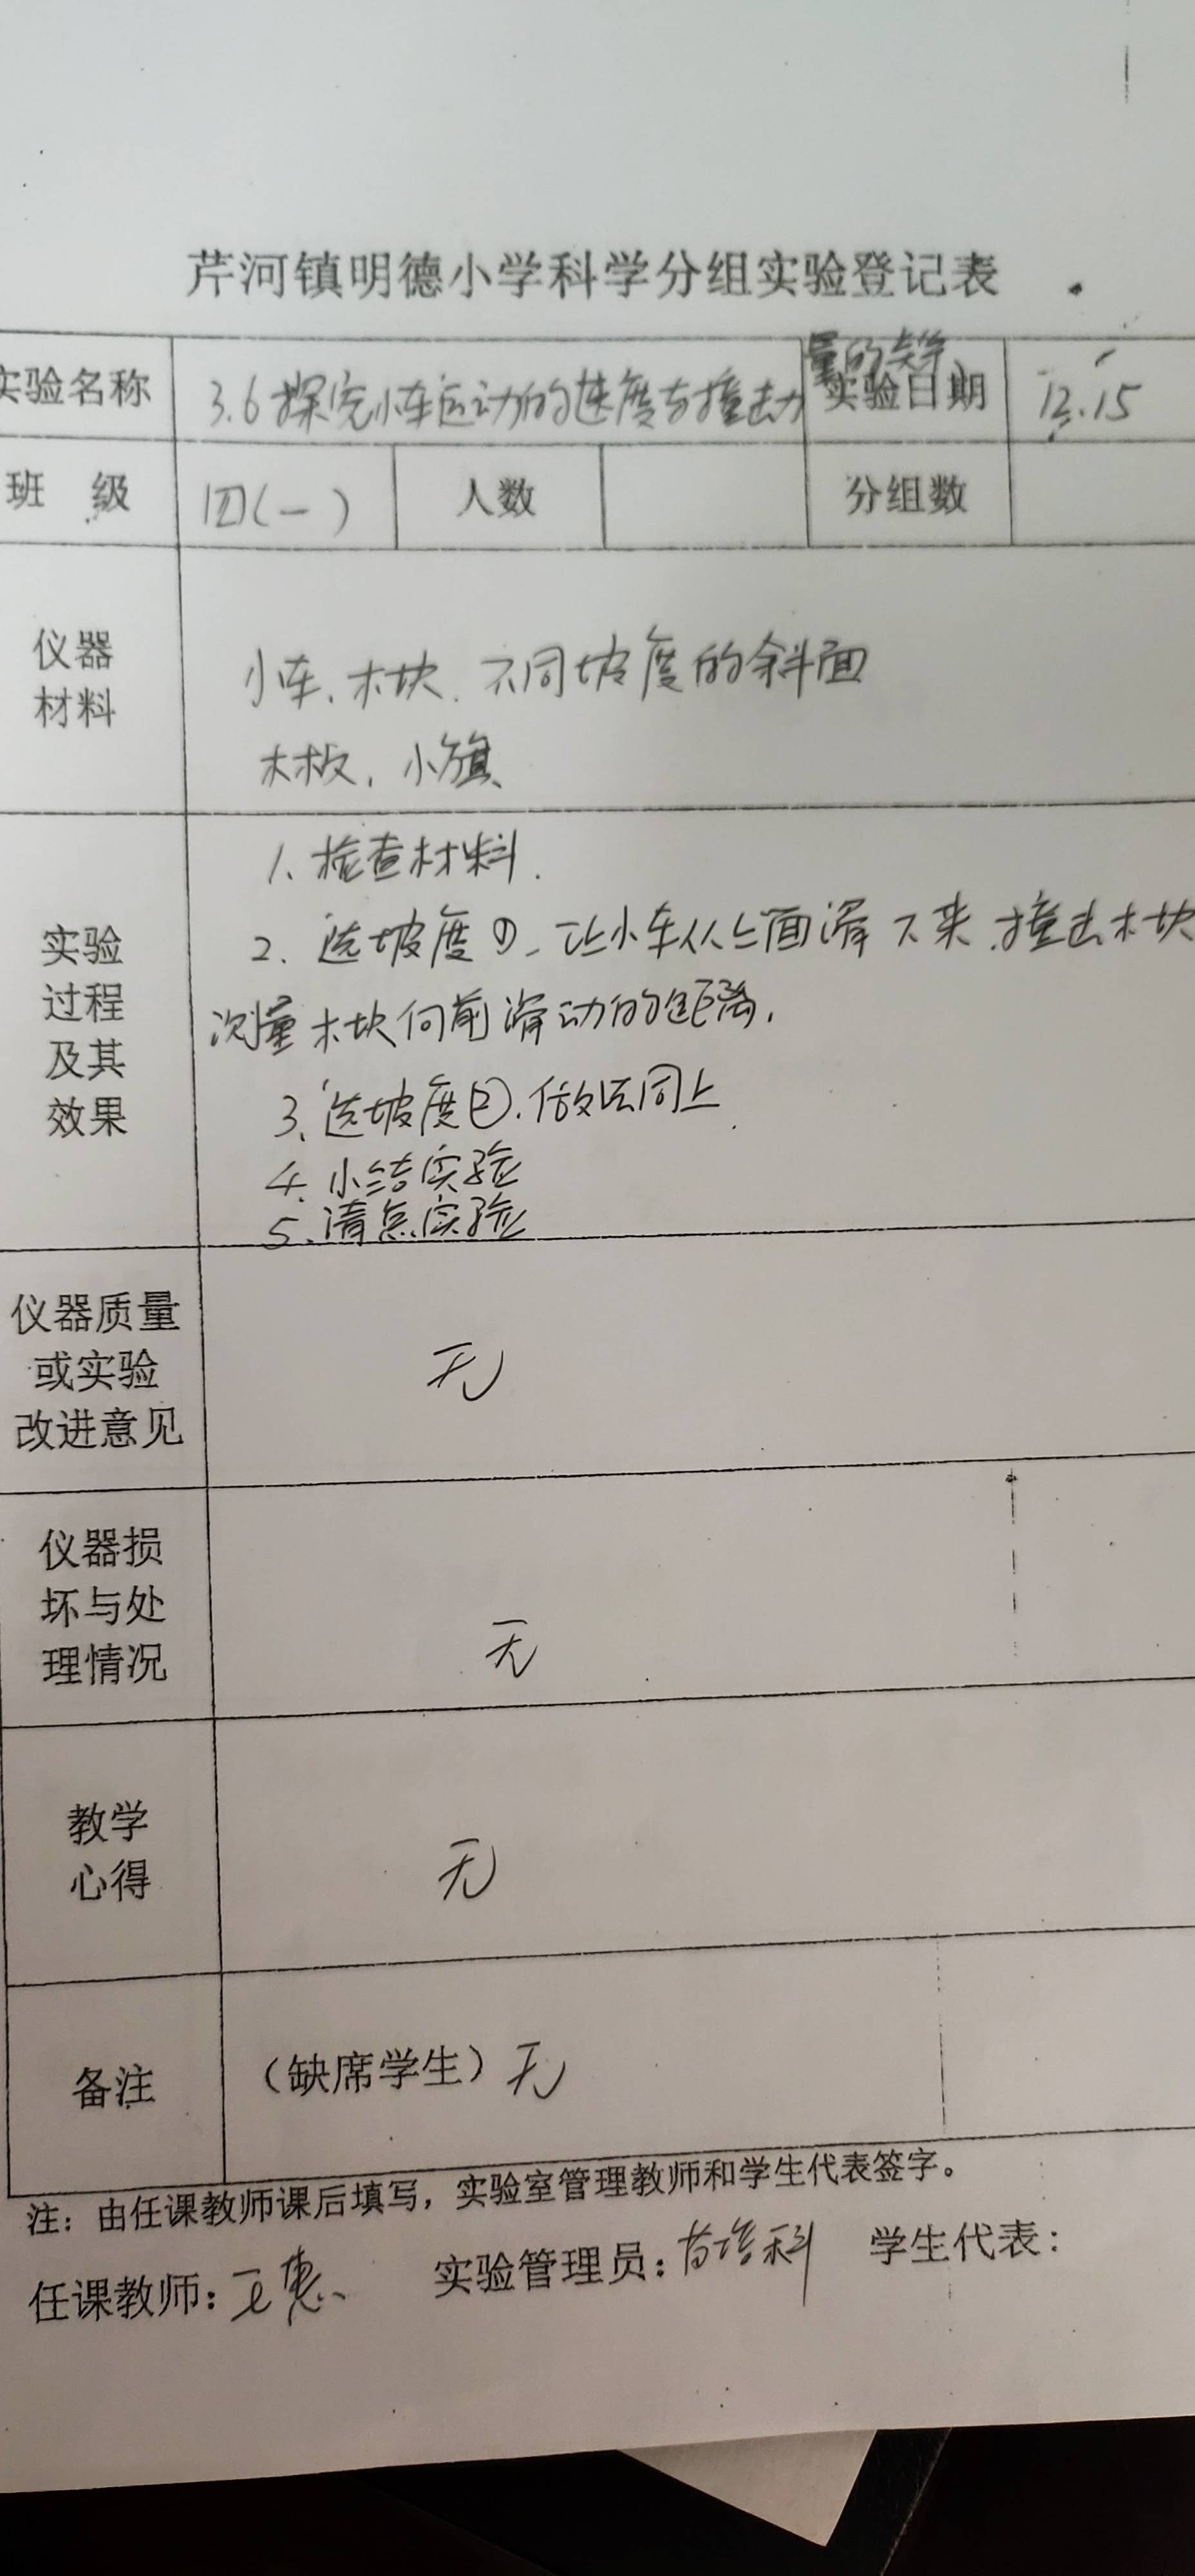 芹河镇明德小学科学分组实验登记表
实验名称 3.6探究小车运动的速度与撞击力量的关系 实验日期 12.15
班 级 四(一) 人数 分组数
仪器
材料
小车、木块、不同坡度的斜面
木板、小旗
实验
过程
及其
效果
1、检查材料.
2、选坡度①、让小车从上面滑下来.撞击木块
测量木块向前滑动的距离.
3、选坡度②.做法同上
4、小结实验
5、清点实验
仪器质量
或实验
改进意见
无
仪器损
坏与处
理情况
无
教学
心得
无
备注 (缺席学生) 无
注：由任课教师课后填写，实验室管理教师和学生代表签字。
任课教师： 实验管理员： 学生代表：